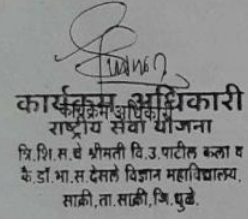 कार्यक्रम अधिकारी
कार्यक्रम अधिकारी
राष्ट्रीय सेवा योजना
त्रि.शि.स.चे श्रीमती वि.उ.पाटील कला व
कै.डॉ.भा.स.देसले विज्ञान महाविद्यालय,
साक्री,ता.साक्री,जि.धुळे.